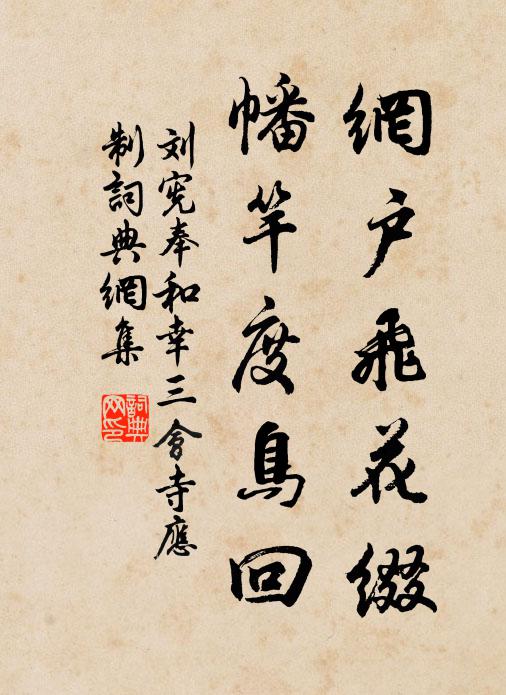 網户飛花綴
幡竿度鳥回
刘宪奉和幸三會寺應
制詞典網集
詞典网印